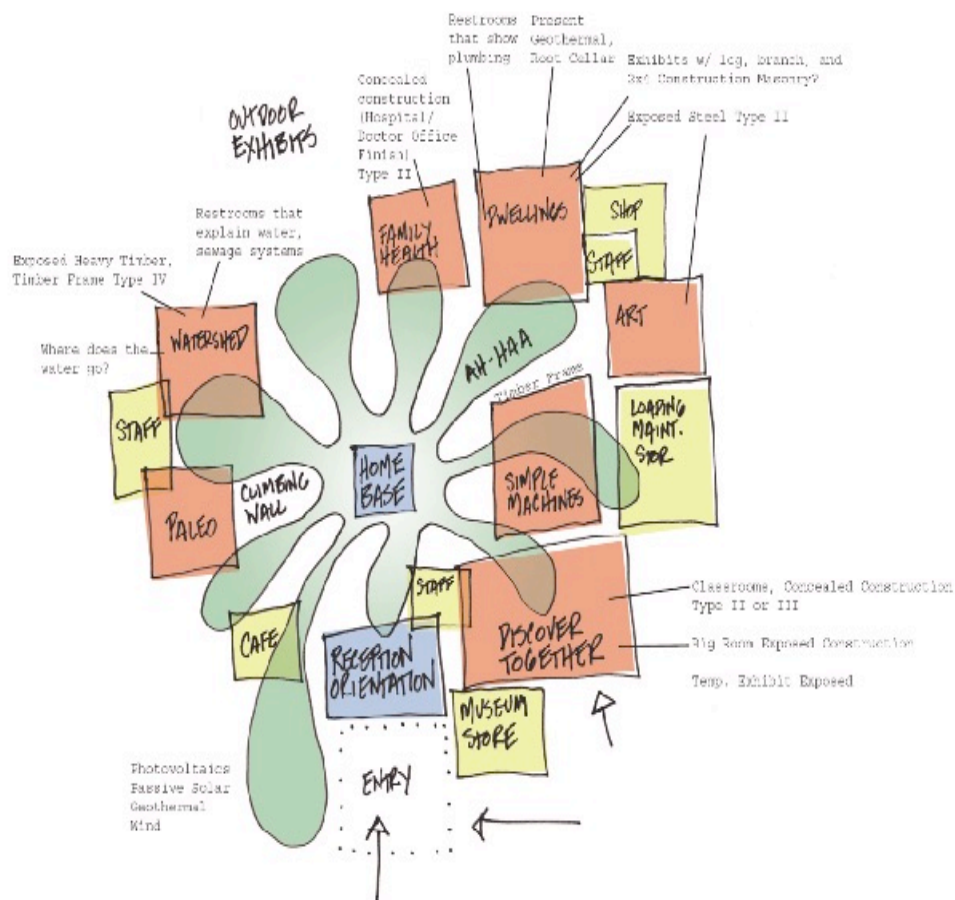 Restrooms
that show
plumbing
Present
Geothermal,
Root Cellar
Exhibits w/ log, branch, and
2x4 Construction Masonry?
Exposed Steel Type II
Concealed
construction
(Hospital/
Doctor Office
Finish)
Type II
OUTDOOR
EXHIBITS
Restrooms that
explain water,
sewage systems
Exposed Heavy Timber,
Timber Frame Type IV
Where does the
water go?
FAMILY
HEALTH
DWELLINGS
SHOP
STAFF
ART
WATERSHED
AH-HAA
Timber Frame
STAFF
LOADING
MAINT.
STOR
HOME
BASE
CLIMBING
WALL
SIMPLE
MACHINES
PALEO
STAFF
CAFE
RECEPTION
ORIENTATION
DISCOVER
TOGETHER
Classrooms, Concealed Construction
Type II or III
Big Room Exposed Construction
Temp. Exhibit Exposed
MUSEUM
STORE
ENTRY
Photovoltaics
Passive Solar
Geothermal
Wind